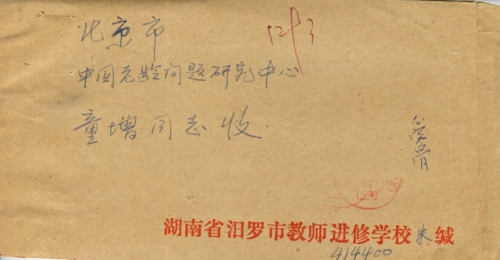 北京市
中国老龄问题研究中心
童增同志收
湖南省汨罗市教师进修学校朱缄
414400